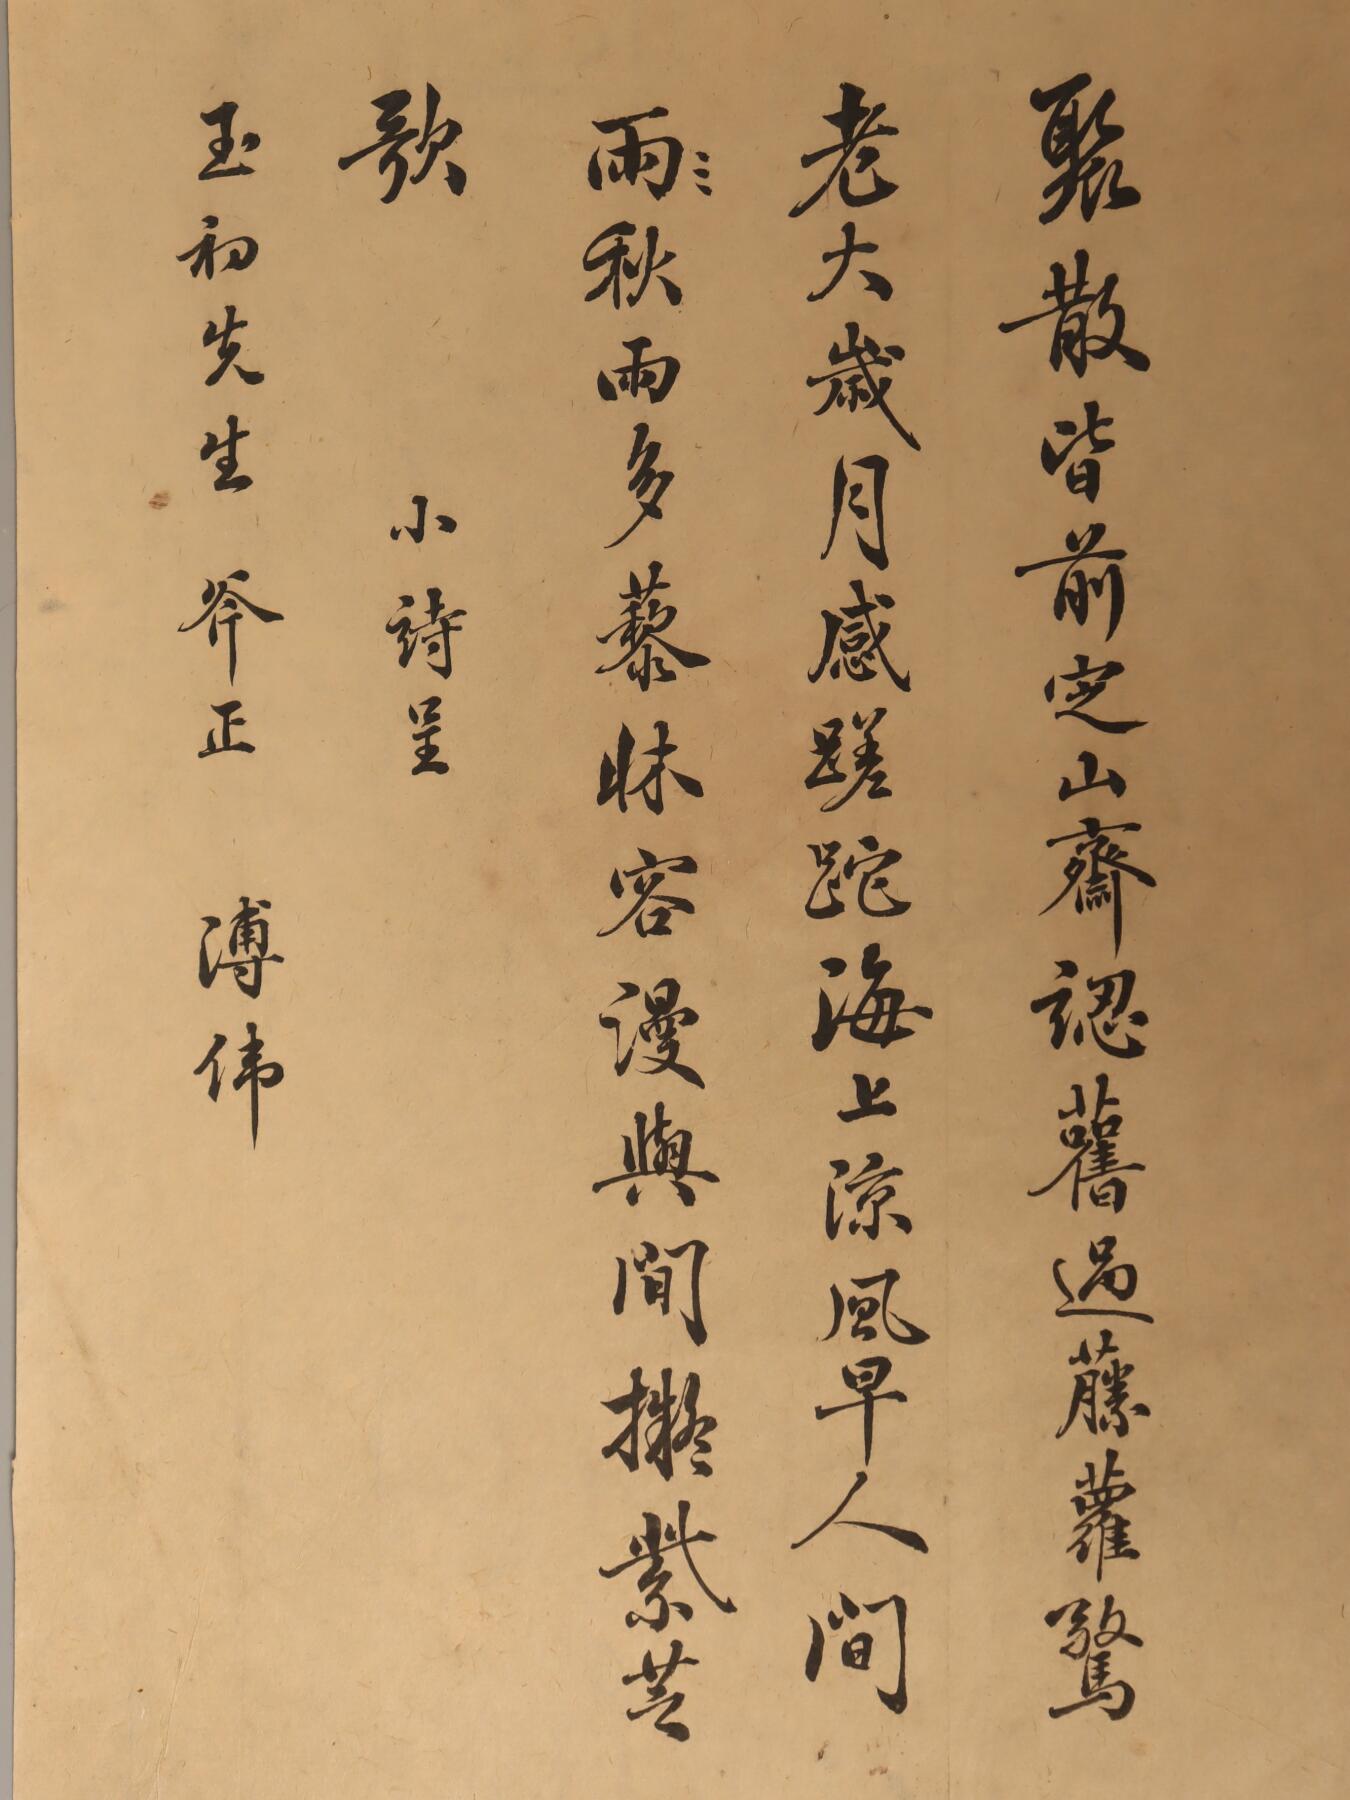 聚散皆前定山齋認舊過藤蘿驚
老大歲月感蹉跎海上涼風早人間
雨秋雨多藜牀容漫與閒擬紫芝
歌 小詩呈
玉初先生 斧正 溥偉